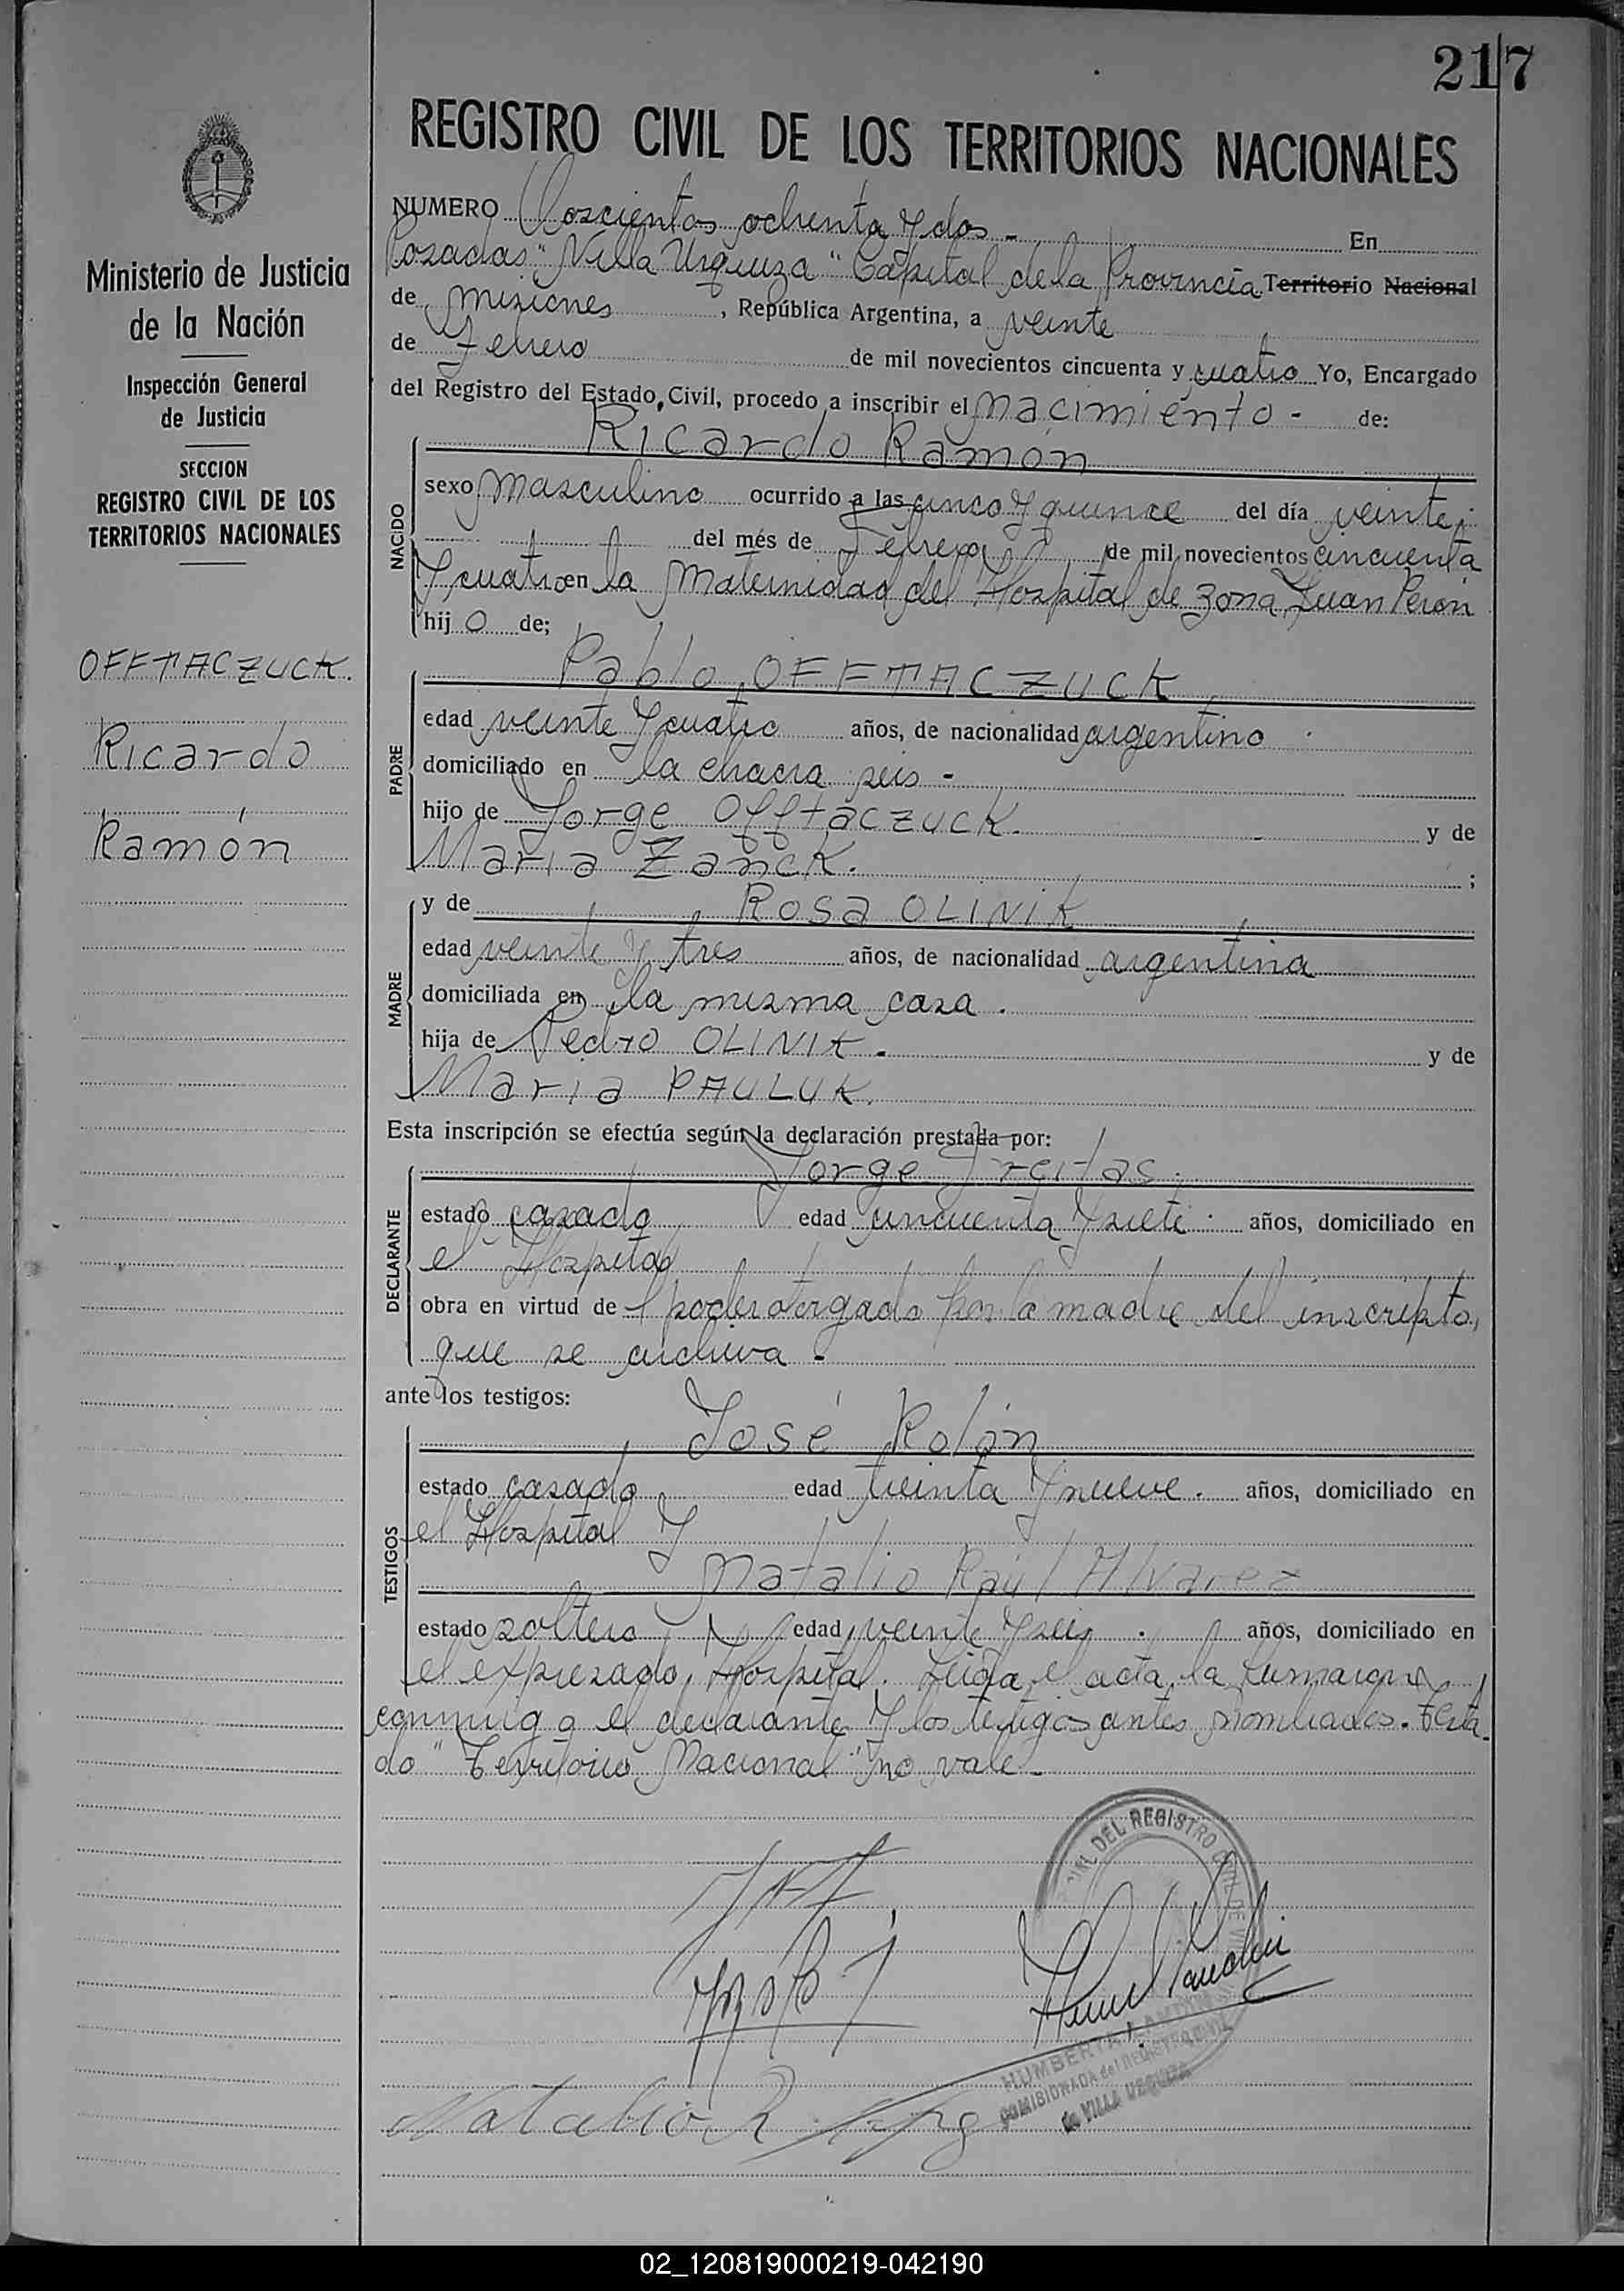 217
REGISTRO CIVIL DE LOS TERRITORIOS NACIONALES
Ministerio de Justicia
de la Nación
Inspección General
de Justicia
SECCION
REGISTRO CIVIL DE LOS
TERRITORIOS NACIONALES
OFFTACZUCK.
Ricardo
Ramón
NUMERO Doscientos ochenta y dos - En
Posadas "Villa Urquiza" Capital de la Provincia Territorio Nacional
de Misiones, República Argentina, a veinte
de Febrero de mil novecientos cincuenta y cuatro Yo, Encargado
del Registro del Estado Civil, procedo a inscribir el nacimiento - de:
Ricardo Ramón
NACIDO
sexo masculino ocurrido a las cinco y quince del día veinte
del més de Febrero de mil novecientos cincuenta
y cuatro en la Maternidad del Hospital de Zona Juan Perón
hijo de;
Pablo OFFTACZUCK
PADRE
edad veinte y cuatro años, de nacionalidad argentino
domiciliado en la chacra seis -
hijo de Jorge Offtaczuck. y de
Maria Zanck. ;
y de Rosa OLINIK
MADRE
edad veinte y tres años, de nacionalidad argentina
domiciliada en la misma casa.
hija de Pedro OLINIK. y de
Maria PAULUK.
Esta inscripción se efectúa según la declaración prestada por:
Jorge Freitas.
DECLARANTE
estado casado edad cincuenta y siete. años, domiciliado en
el Hospital
obra en virtud de poder otorgado por la madre del inscripto,
que se archiva -
ante los testigos:
José Rolón
TESTIGOS
estado casado edad treinta y nueve. años, domiciliado en
el Hospital y
Natalio Raúl Alvarez
estado soltero edad veinte y seis. años, domiciliado en
el expresado Hospital. Leída el acta, la
conmigo el declarante y los testigos antes nombrados. Testa-
do "Territorio Nacional" no vale -
DEL REGISTRO CIVIL DE
Natalio R
HUMBERTA
COMISIONADA del REGISTRO CIVIL
de VILLA URQUIZA
02_120819000219-042190